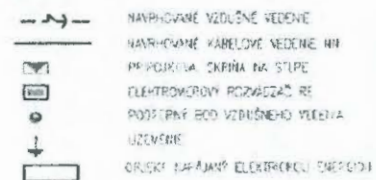 NAVRHOVANÉ VZDUŠNÉ VEDENIE
NAVRHOVANÉ KÁBELOVÉ VEDENIE NN
PRÍPOJKOVÁ SKRIŇA NA STĹPE
ELEKTROMEROVÝ ROZVÁDZAČ RE
PODPERNÝ BOD VZDUŠNÉHO VEDENIA
UZEMENIE
OBJEKT NAPÁJANÝ ELEKTRICKOU ENERGIOU